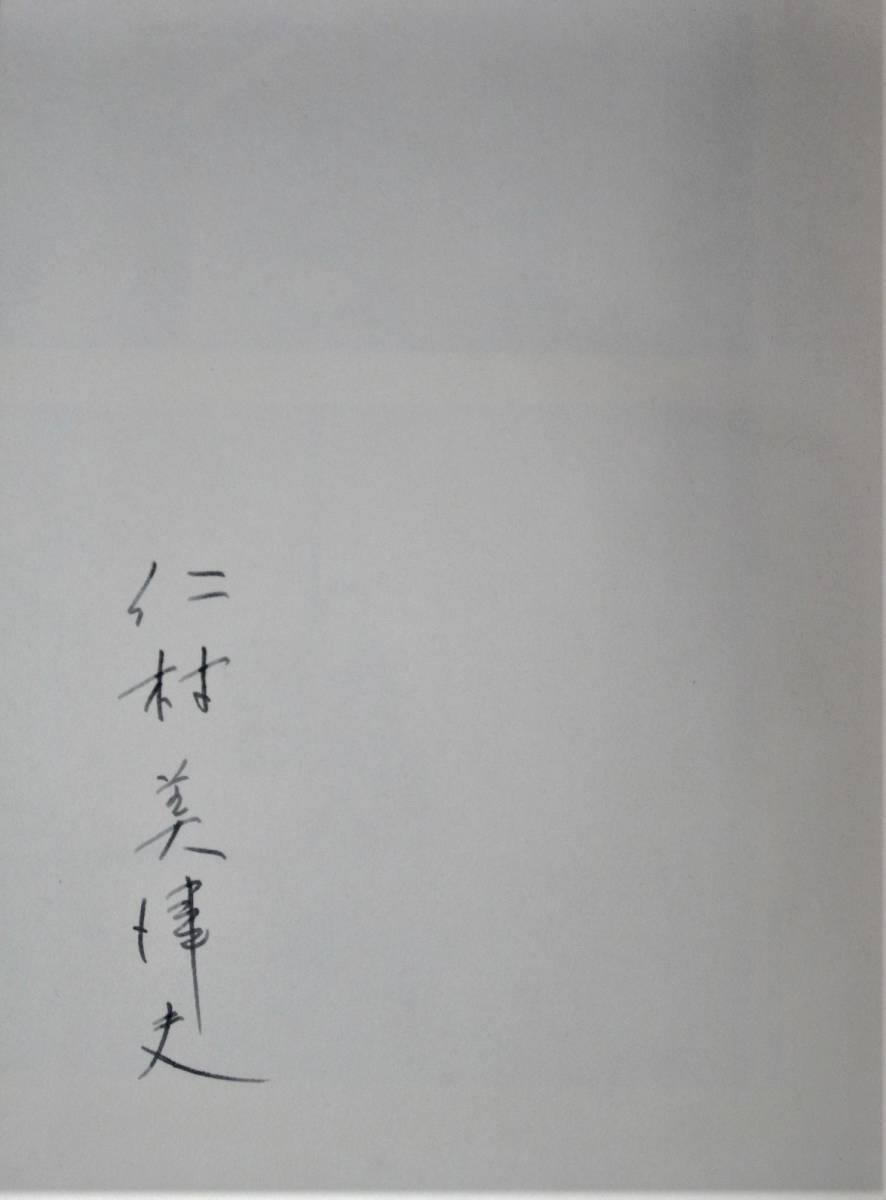 仁村美津夫